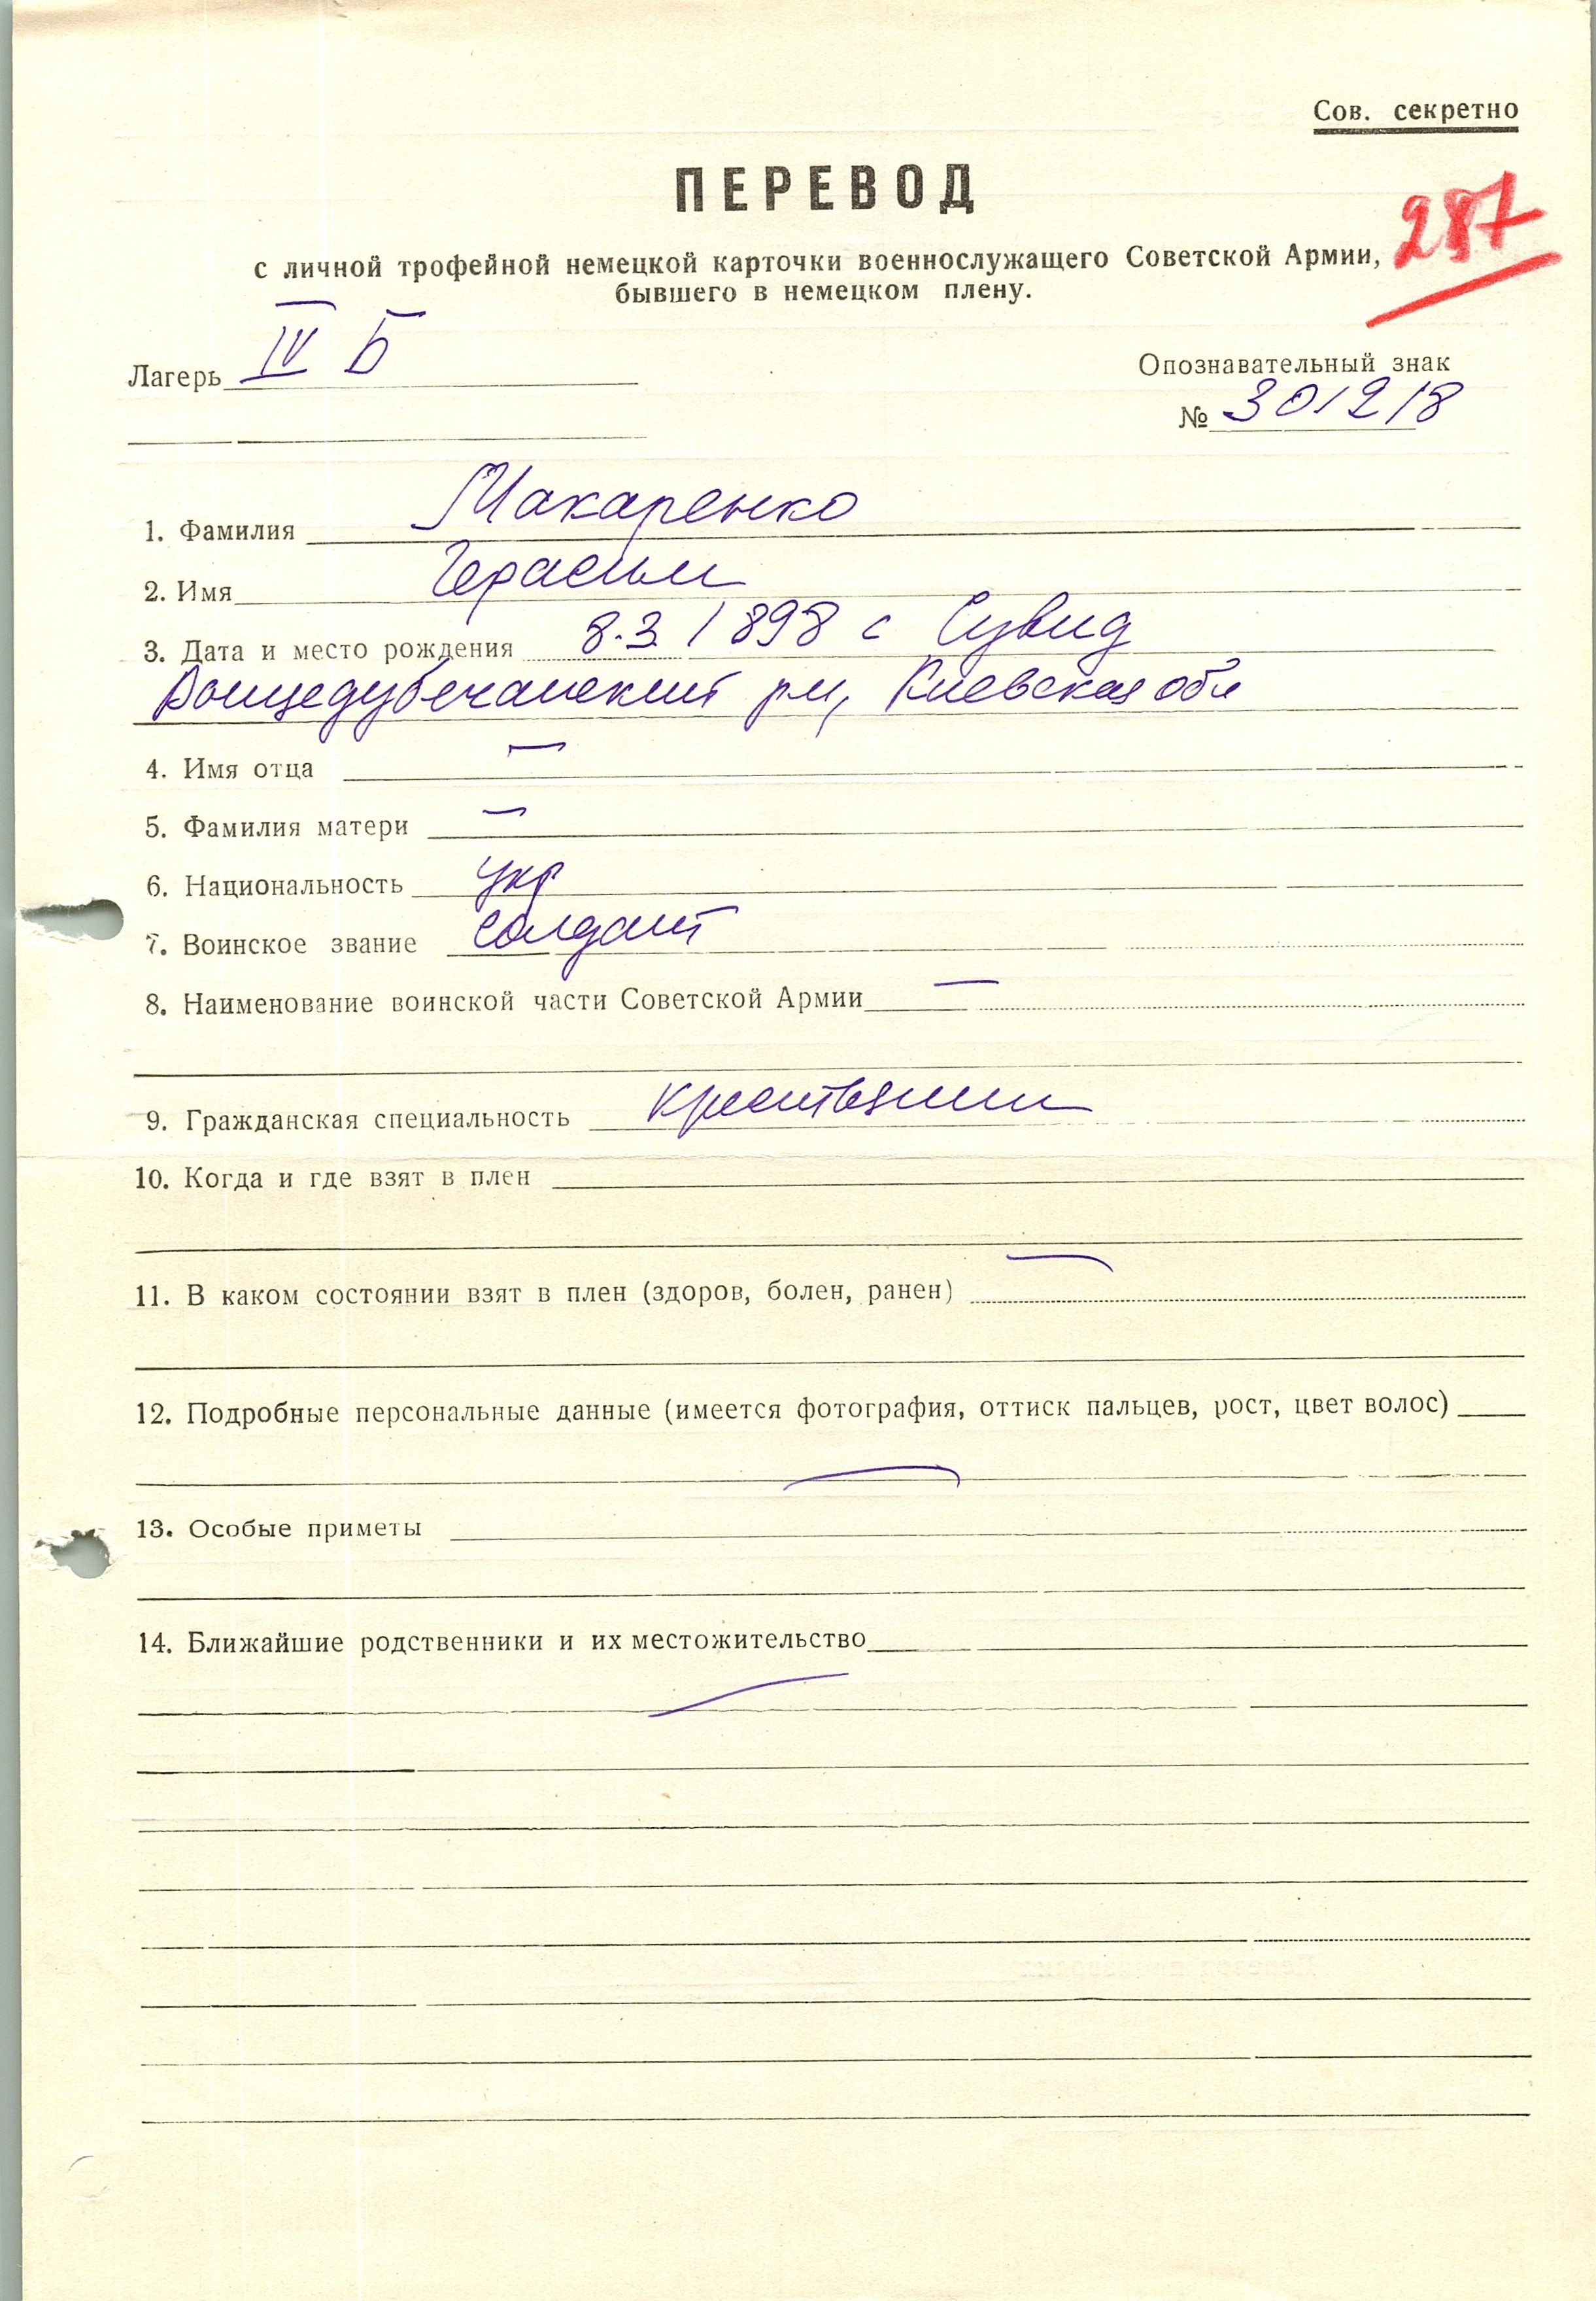 Сов. секретно
ПЕРЕВОД
287
с личной трофейной немецкой карточки военнослужащего Советской Армии,
бывшего в немецком плену.
Лагерь IV Б
Опознавательный знак
№ 301218
1. Фамилия Макаренко
2. Имя Герасим
3. Дата и место рождения 8.3.1898 с Сувид
рн, Киевская обл
4. Имя отца —
5. Фамилия матери —
6. Национальность укр
7. Воинское звание солдат
8. Наименование воинской части Советской Армии —
9. Гражданская специальность крестьянин
10. Когда и где взят в плен
11. В каком состоянии взят в плен (здоров, болен, ранен) —
12. Подробные персональные данные (имеется фотография, оттиск пальцев, рост, цвет волос)
—
13. Особые приметы
14. Ближайшие родственники и их местожительство
—